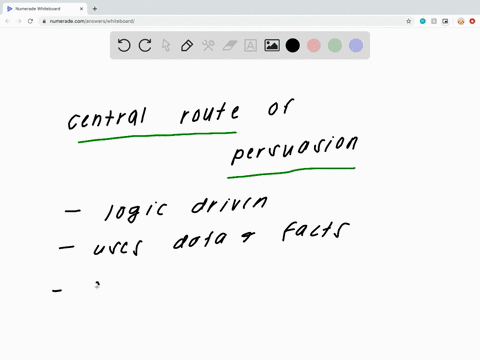 Numerade Whiteboard
numerade.com/answers/whiteboard/
central route of
persuasion
- logic driven
- uses data & facts
-